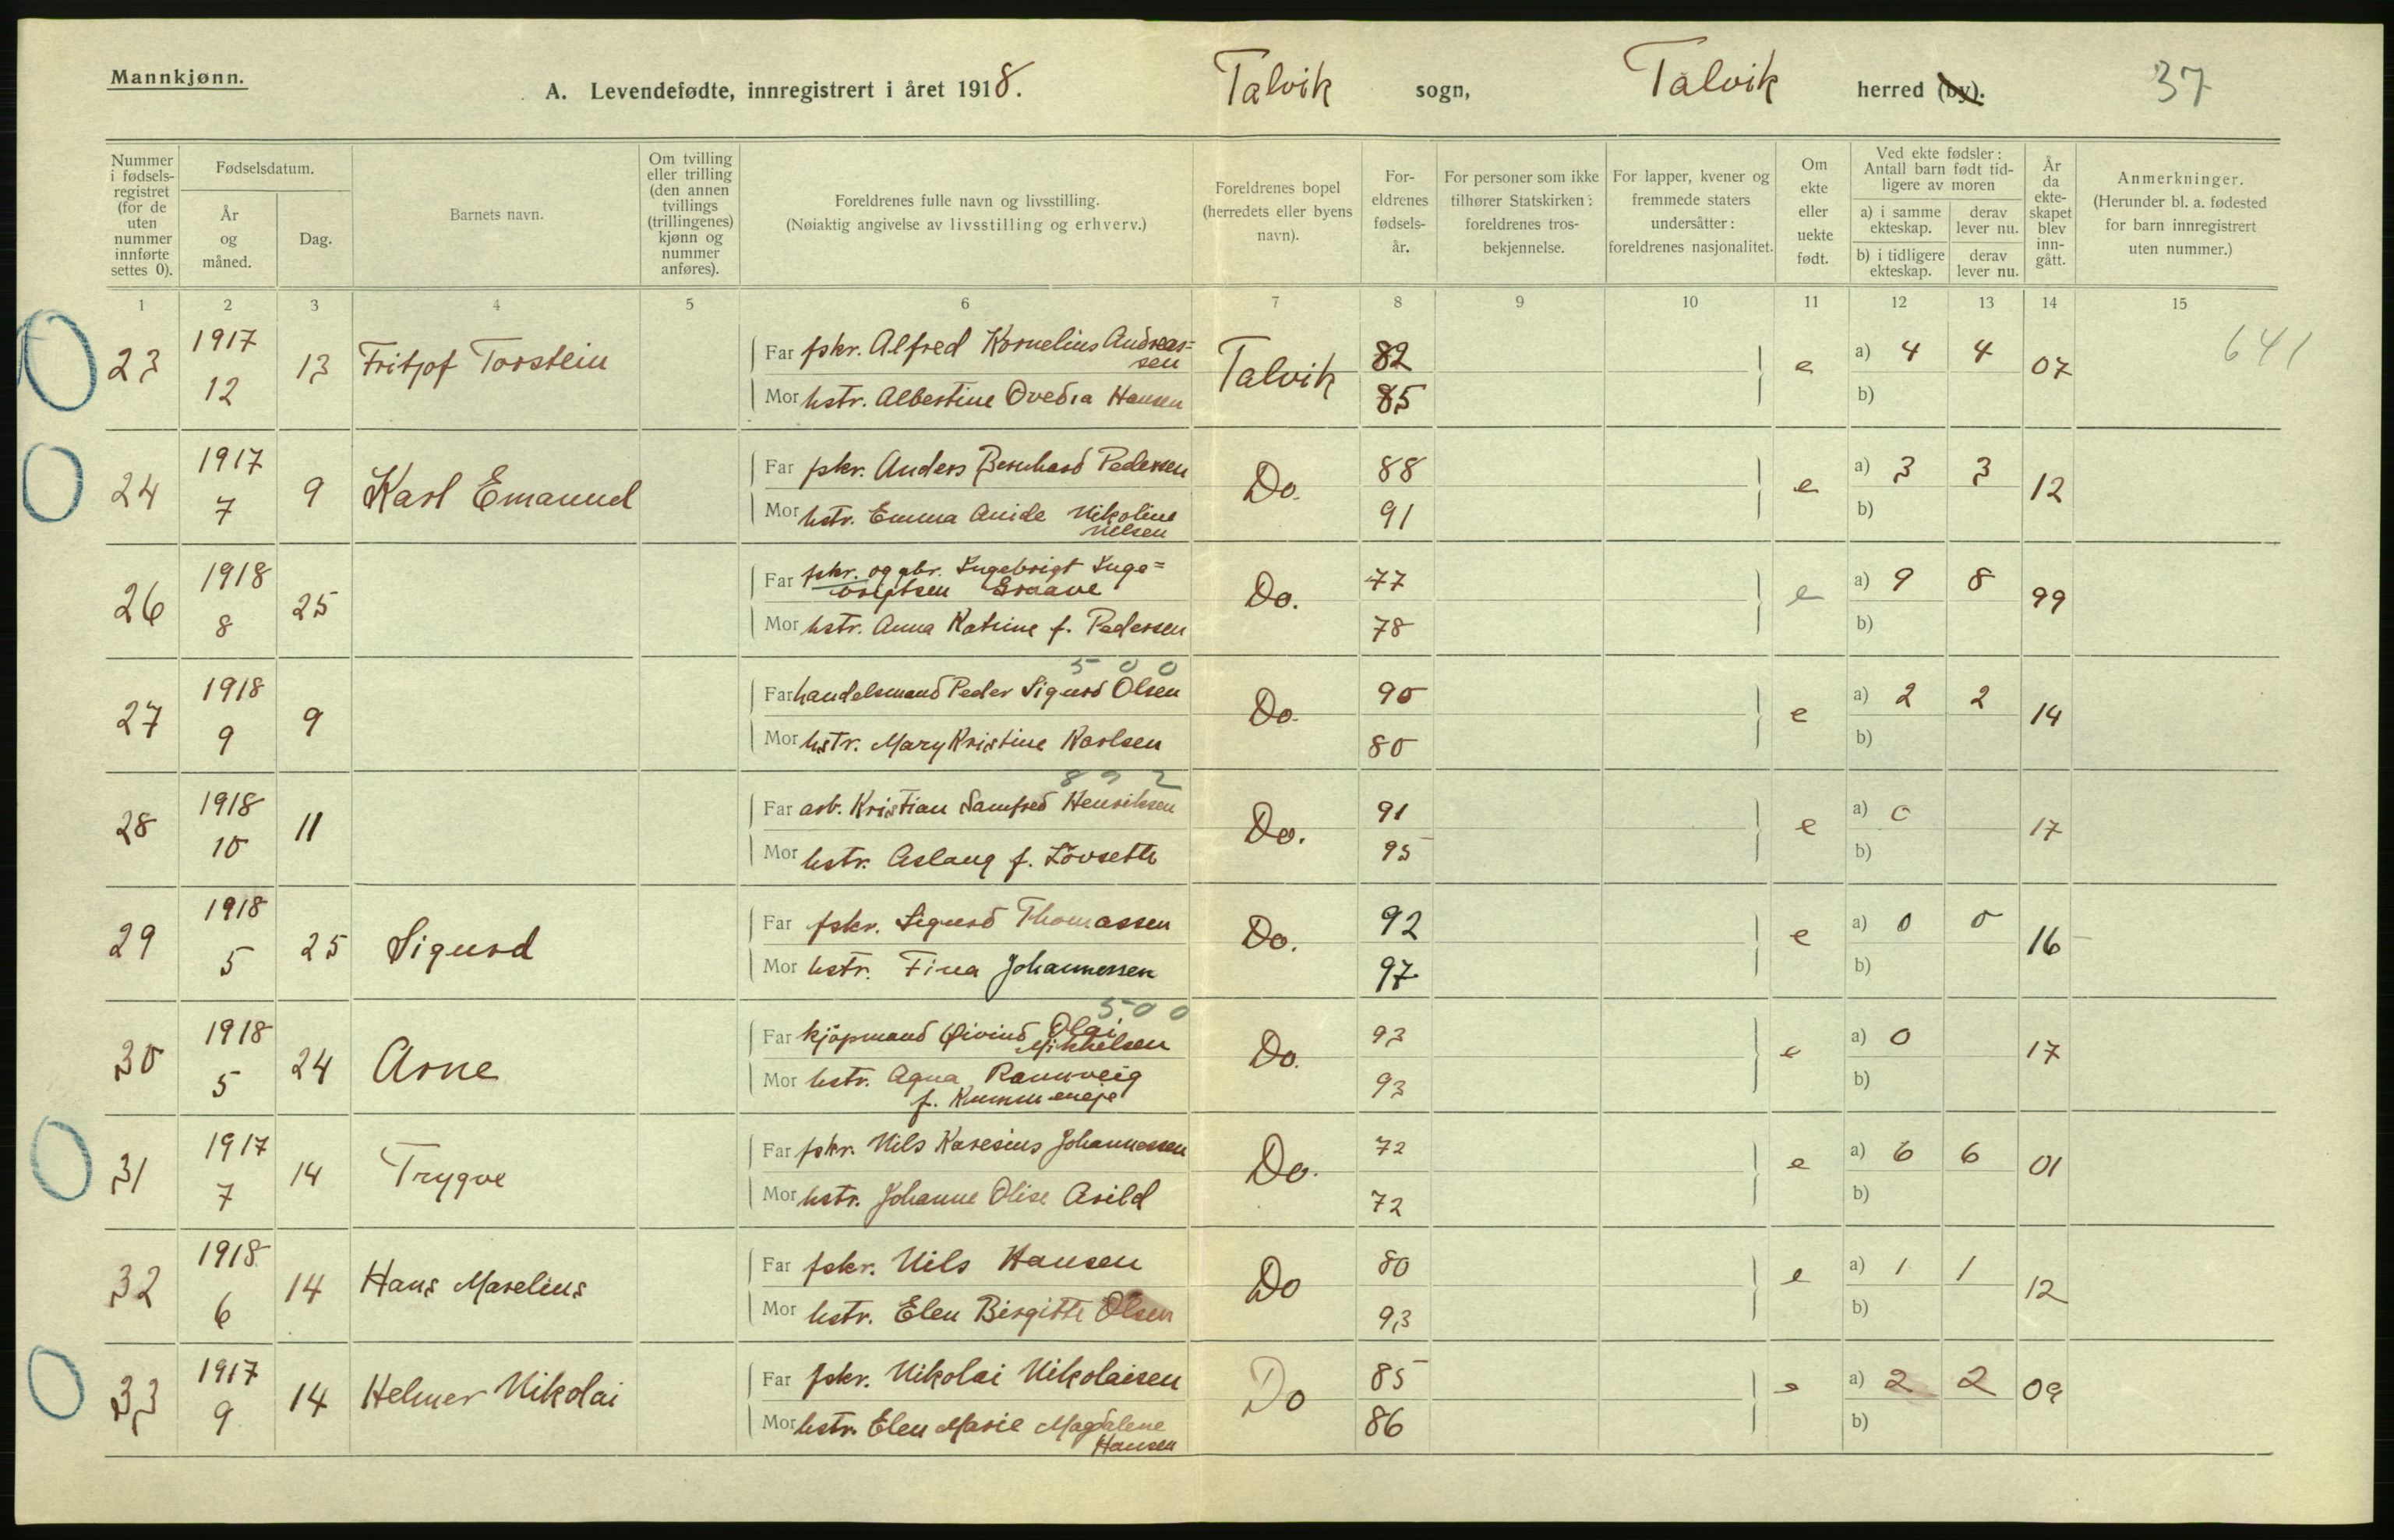 Mannkjønn.
A. Levendefødte, innregistrert i året 1918. Talvik sogn, Talvik herred (by). 37
Nummer i fødselsregistret (for de uten nummer innførte settes 0).
Fødselsdatum.
År og måned.
Dag.
Barnets navn.
Om tvilling eller trilling (den annen tvillings (trillingenes) kjønn og nummer anføres).
Foreldrenes fulle navn og livsstilling.
(Nøiaktig angivelse av livsstilling og erhverv.)
Foreldrenes bopel (herredets eller byens navn).
Foreldrenes fødselsår.
For personer som ikke tilhører Statskirken: foreldrenes trosbekjennelse.
For lapper, kvener og fremmede staters undersåtter: foreldrenes nasjonalitet.
Om ekte eller uekte født.
Ved ekte fødsler: Antall barn født tidligere av moren
a) i samme ekteskap. derav lever nu.
b) i tidligere ekteskap. derav lever nu.
År da ekteskapet blev inngått.
Anmerkninger.
(Herunder bl. a. fødested for barn innregistrert uten nummer.)
1 2 3 4 5 6 7 8 9 10 11 12 13 14 15
23 1917 12 13 Fritjof Torstein
Far fskr. Alfred Kornelius Andreas=
sen
Talvik 82 e a) 4 4 07 641
Mor hstr. Albertine Ovedia Hansen 85 b)
24 1917 7 9 Karl Emanuel
Far fskr. Anders Bernhard Pedersen
Do. 88 e a) 3 3 12
Mor hstr. Emma Anide Nikoline
Nilsen
91 b)
26 1918 8 25
Far fskr. og gbr. Ingebrigt Inge=
brigtsen
Do. 77 e a) 9 8 99
Mor hstr. Anna Katrine f. Pedersen 78 b)
500
27 1918 9 9
Far handelsmand Peder Sigurd Olsen
Do. 90 e a) 2 2 14
Mor hstr. Mary Kristine Karlsen 80 b)
28 1918 10 11
Far arb. Kristian Samfred Henriksen
Do. 91 e a) 0 17
Mor hstr. Aslaug f. Lövseth 95 b)
29 1918 5 25 Sigurd
Far fskr. Sigurd Thomassen
Do. 92 e a) 0 0 16
Mor hstr. Fina Johannessen 97 b)
500
30 1918 5 24 Arne
Far kjöpmand Øivind Olai
Mikkelsen
Do. 93 e a) 0 17
Mor hstr. Agna Rannveig
f. Kummeneje
93 b)
31 1917 7 14 Trygve
Far fskr. Nils Karesius Johannessen
Do. 72 e a) 6 6 01
Mor hstr. Johanne Olise Arild 72 b)
32 1918 6 14 Hans Marelius
Far fskr. Nils Hansen
Do 80 e a) 1 1 12
Mor hstr. Elen Birgitte Olsen 93 b)
33 1917 9 14 Helmer Nikolai
Far fskr. Nikolai Nikolaisen
Do 85 e a) 2 2 09
Mor hstr. Elen Marie Magdalene
Hansen
86 b)